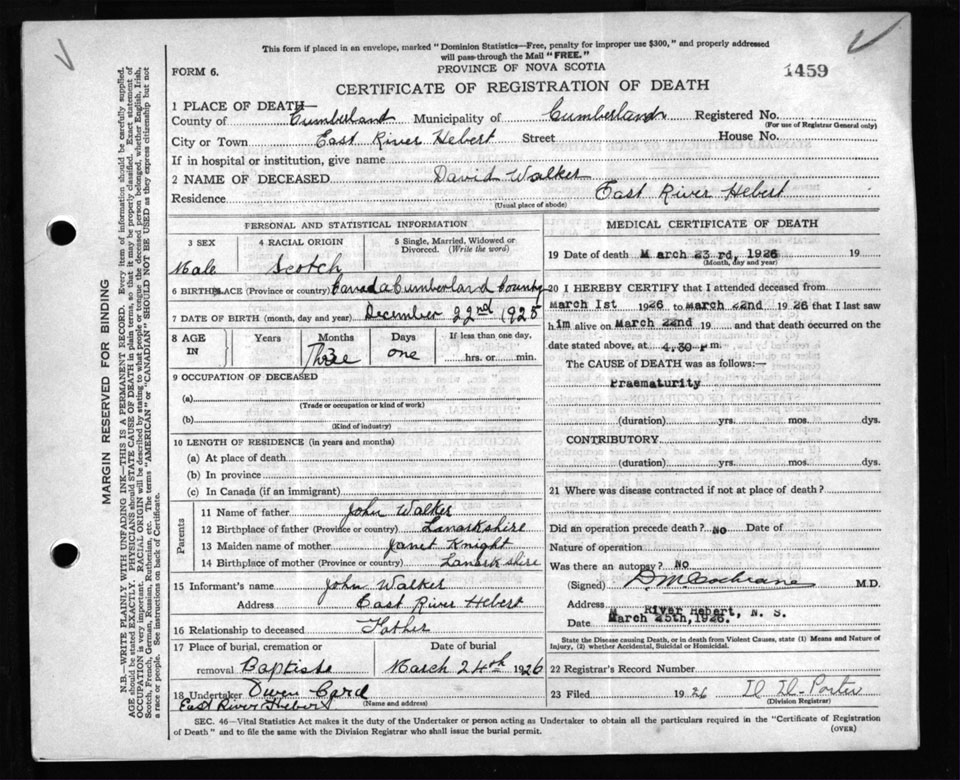 This form if placed in an envelope, marked "Dominion Statistics—Free, penalty for improper use $300," and properly addressed
will pass through the Mail "FREE."
FORM 6.
PROVINCE OF NOVA SCOTIA
1459
CERTIFICATE OF REGISTRATION OF DEATH
1 PLACE OF DEATH—
County of Cumberland Municipality of Cumberland Registered No.
(For use of Registrar General only)
City or Town East River Hebert Street House No.
If in hospital or institution, give name
2 NAME OF DECEASED David Walker
Residence East River Hebert
(Usual place of abode)
PERSONAL AND STATISTICAL INFORMATION
3 SEX 4 RACIAL ORIGIN 5 Single, Married, Widowed or
Divorced. (Write the word)
Male Scotch
6 BIRTHPLACE (Province or country) Canada Cumberland County
7 DATE OF BIRTH (month, day and year) December 22nd 1925
8 AGE IN Years Months Days If less than one day,
Three one hrs. or min.
9 OCCUPATION OF DECEASED
(a)
(Trade or occupation or kind of work)
(b)
(Kind of industry)
10 LENGTH OF RESIDENCE (in years and months)
(a) At place of death
(b) In province
(c) In Canada (if an immigrant)
Parents
11 Name of father John Walker
12 Birthplace of father (Province or country) Lanarkshire
13 Maiden name of mother Janet Knight
14 Birthplace of mother (Province or country) Lanarkshire
15 Informant's name John Walker
Address East River Hebert
16 Relationship to deceased Father
17 Place of burial, cremation or Date of burial
removal Baptiste March 24th 1926
18 Undertaker Owen Card
East River Hebert (Name and address)
MEDICAL CERTIFICATE OF DEATH
19 Date of death March 23rd, 1926 19
(Month, day and year)
20 I HEREBY CERTIFY that I attended deceased from
March 1st 1926 to March 22nd 1926 that I last saw
him alive on March 22nd 19 and that death occurred on the
date stated above, at 4.30 p m.
The CAUSE OF DEATH was as follows:—
Praematurity
(duration) yrs. mos. dys.
CONTRIBUTORY
(duration) yrs. mos. dys.
21 Where was disease contracted if not at place of death?
Did an operation precede death? No Date of
Nature of operation
Was there an autopsy? No
(Signed) D McCochrane M.D.
Address River Hebert, N. S.
Date March 25th, 1926.
State the Disease causing Death, or in death from Violent Causes, state (1) Means and Nature of
Injury, (2) whether Accidental, Suicidal or Homicidal.
22 Registrar's Record Number
23 Filed 1926 Porter
(Division Registrar)
SEC. 46—Vital Statistics Act makes it the duty of the Undertaker or person acting as Undertaker to obtain all the particulars required in the "Certificate of Registration
of Death" and to file the same with the Division Registrar who shall issue the burial permit.
(OVER)
MARGIN RESERVED FOR BINDING
N.B.—WRITE PLAINLY WITH UNFADING INK—THIS IS A PERMANENT RECORD. Every item of information should be carefully supplied.
AGE should be stated EXACTLY. PHYSICIANS should STATE CAUSE OF DEATH in plain terms, so that it may be properly classified. Exact statement of
OCCUPATION is very important. RACIAL ORIGIN will be described by stating to what people or tongue the deceased person belonged, whether English, Irish,
Scotch, French, German, Russian, Ruthenian, etc. The terms "AMERICAN" or "CANADIAN" SHOULD NOT BE USED as they express citizenship but not
a race or people. See instructions on back of Certificate.